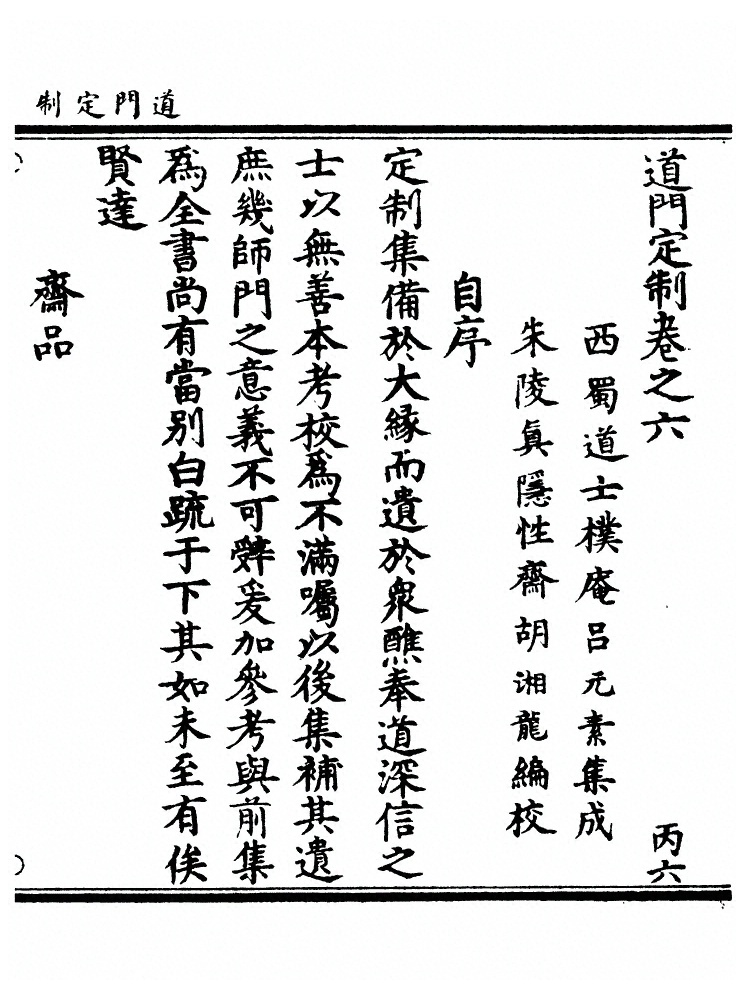 道門定制
道門定制卷之六
丙六
西蜀道士樸庵呂元素集成
朱陵眞隱性齋胡湘龍編校
自序
定制集備於大緣而遺於衆醮奉道深信之
士以無善本考校爲不滿囑以後集補其遺
庶幾師門之意義不可辤爰加參考與前集
爲全書尚有當別白䟽于下其如未至有俟
賢達
齋品